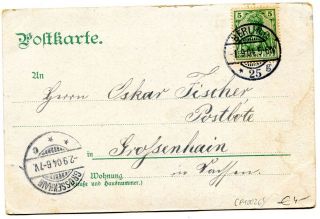 Postkarte.
5 5
BERLIN
1.9.04.
* 25 g
An
Herrn Oskar Fischer
Postbote
Grossenhain
in Sachsen.
Wohnung
(Straße und Hausnummer.)
GROSSENHAIN
-2.9.04.6-7V.
c